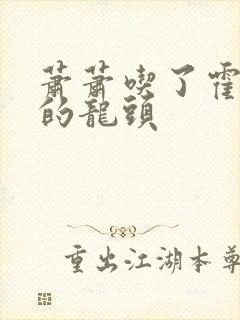 萧萧喫了霍
的龍頭
重出江湖本尊